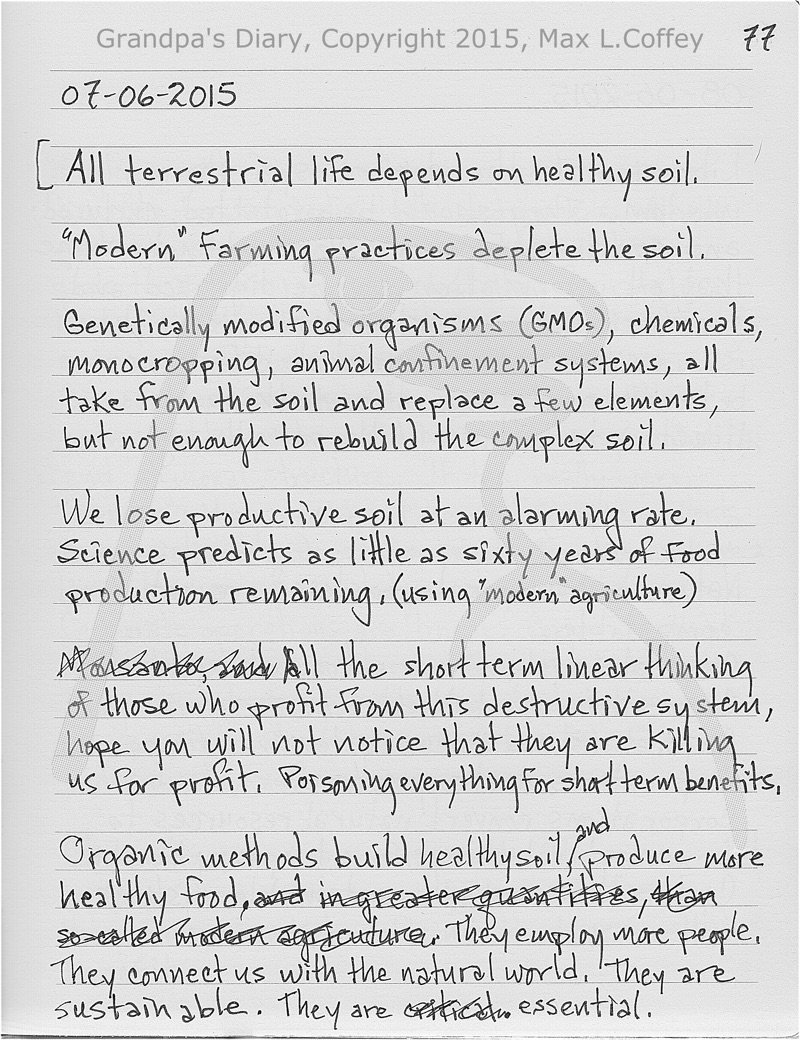 Grandpa's Diary, Copyright 2015, Max L.Coffey
77
07-06-2015
[All terrestrial life depends on healthy soil.
"Modern" Farming practices deplete the soil.
Genetically modified organisms (GMOs), chemicals,
monocropping, animal confinement systems, all
take from the soil and replace a few elements,
but not enough to rebuild the complex soil.
We lose productive soil at an alarming rate.
Science predicts as little as sixty years of food
production remaining. (using "modern" agriculture)
Monsanto, and All the short term linear thinking
of those who profit from this destructive system,
hope you will not notice that they are killing
us for profit. Poisoning everything for short term benefits.
Organic methods build healthy soil, and produce more
healthy food, and in greater quantities, than
so called modern agricuture. They employ more people.
They connect us with the natural world. They are
sustainable. They are critical. essential.